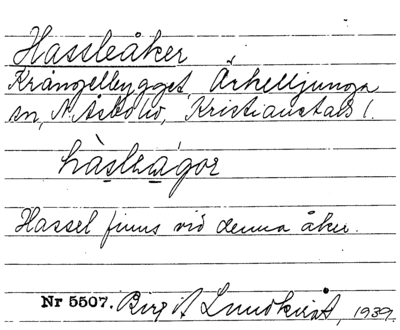 Hassleåker
Krångelbygget, Örkelljunga
sn, N. Åsbo hd, Kristianstads l.
hàsleágor
Hassel finns vid denna åker.
Nr 5507. Birgit Lundkvist, 1939.